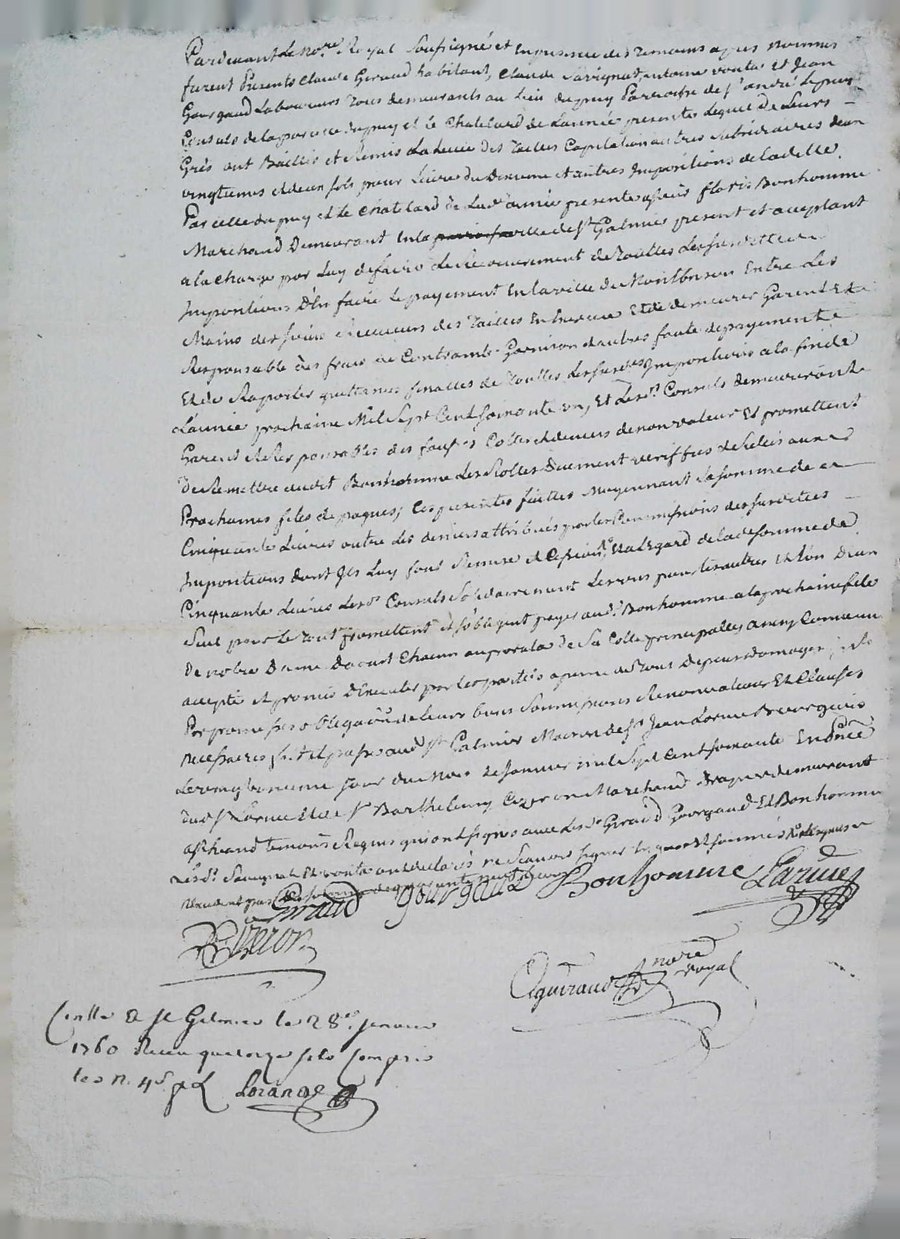 Pardevant Le no.re Royal Soussigné et En presence des temoins apres nommés
furent Presents Claude Giraud habitant, Claude Savignat, antoine voute Et Jean
Gourgaud Laboureurs Tous demeurants au Lieu du puy Parroisse de S.t andré Lepuy
Consuls de la parroisse du puy et le Chatelard de L'année presente Lequel de Leurs
Grés ont Baillés et Remis La Levée des Tailles Capitation autres subsidiaires deux
vingtiemes et deux sols pour Livre du Dixieme et autres Impositions de Ladite
Parcelle du puy et le Chatelard de Lad.e année presente a sieur floris Bonhomme
Marchand Demeurant En la ville de S.t Galmier present et acceptant
a la charge par Luy de faire Le Recouvrement de Toutes Les susdittes
Impositions D'En faire le payement En la ville de Montbrison Entre Les
Mains des sieurs Receveurs des Tailles En Exercice Et de demeurer Garent Et
Responsable des frais de Contrainte Garnison et autres faute de payement
Et de Raporter quittances finalles de Touttes Les susdittes Impositions a la fin de
L'année prochaine Mil Sept Cent soixante un, Et Les d.s Consuls demeureront
Garent Et Responsables des fausses Cottes et deniers de non valeur Et promettent
de Remettre audit Bonhomme Les Rolles Duement veriffiés
Prochaines fetes de paques; Ces presentes faittes Moyennant La somme de
Cinquante Livres outre Les deniers attribués pour Les Commissions des susdittes
Impositions dont Ils Luy font Remise Et Cession, Et a L'Egard de lad.e somme de
Cinquante Livres Les d.s Consuls Solidairement Les uns pour Les autres Et L'un D'eux
Seul pour Le Tout promettent Et s'obligent payer aud.t Bonhomme a la prochaine fete
De notre Dame D'aoust Chacun au prorata de Sa Cotte principalle, ainsy Convenu
accepté et promis D'Executer par Les parties a peine de Tous Depens Domages,
Par promesses obligaõn de Leurs biens Soumissions Renonciations Et Clauses
necessaires fait et passé aud.t S.t Galmier Maison de S.r Jean Larue Bourgeois
Le vingt jour du Mois de Janvier mil Sept Cent soixante En pñce
dud.t S.r Larue Et de S.r Barthelemy Cizeron Marchand Drapier demeurant
temoins Requis qui ont signés avec Les d.s Giraud Gourgaud Et Bonhomme
Les d.s Savignat Et voute ont declarés ne Scavoir signer de ce Enquis Et sommés
Giraud gourgaud Bonhomme Larue
Cizeron
Aguiraud nore royal
Conlle a St Galmier le 28e janvier
1760 Receu quatorze sols Compris
les n. 4s. p L Lorange